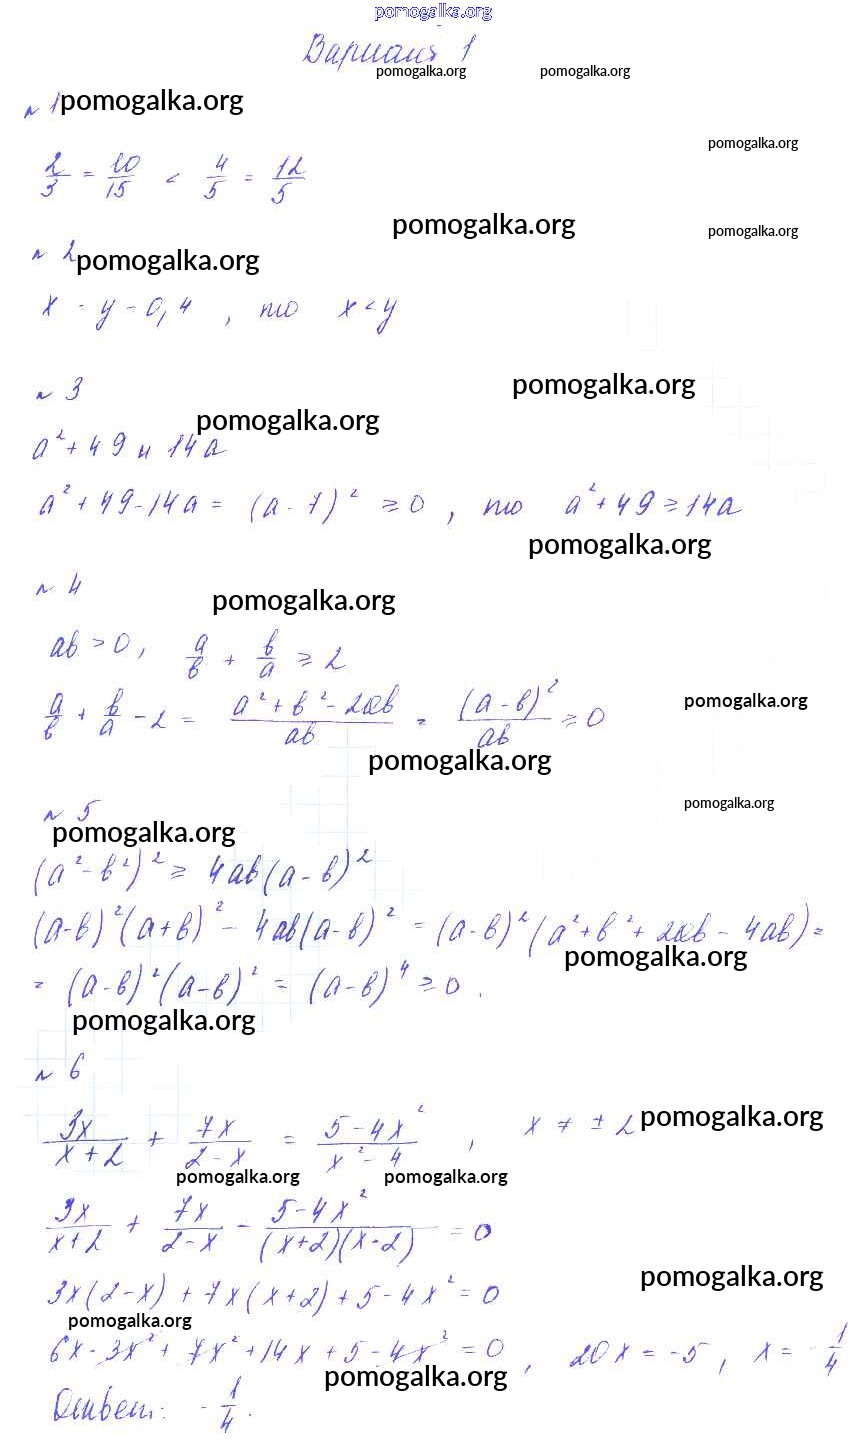 pomogalka.org
Вариант 1
pomogalka.org pomogalka.org
№ 1 pomogalka.org
pomogalka.org
2/3 = 10/15 < 4/5 = 12/5
pomogalka.org pomogalka.org
№ 2 pomogalka.org
x = y - 0,4 , то x < y
№ 3 pomogalka.org
pomogalka.org
a² + 49 и 14a
a² + 49 - 14a = (a - 7)² ≥ 0 , то a² + 49 ≥ 14a
pomogalka.org
№ 4
pomogalka.org
ab > 0, a/b + b/a ≥ 2
a/b + b/a - 2 = (a² + b² - 2ab)/ab = (a - b)²/ab ≥ 0
pomogalka.org
pomogalka.org
pomogalka.org
№ 5
pomogalka.org
(a² - b²)² ≥ 4ab(a - b)²
(a-b)²(a+b)² - 4ab(a-b)² = (a-b)²(a² + b² + 2ab - 4ab) =
pomogalka.org
= (a-b)²(a-b)² = (a-b)⁴ ≥ 0.
pomogalka.org
№ 6
3x/(x+2) + 7x/(2-x) = (5-4x²)/(x²-4) , x ≠ ± 2
pomogalka.org
pomogalka.org pomogalka.org
3x/(x+2) + 7x/(2-x) - (5-4x²)/((x+2)(x-2)) = 0
pomogalka.org
3x(2-x) + 7x(x+2) + 5 - 4x² = 0
pomogalka.org
6x - 3x² + 7x² + 14x + 5 - 4x² = 0 , 20x = -5 , x = -1/4
pomogalka.org
Ответ: -1/4.